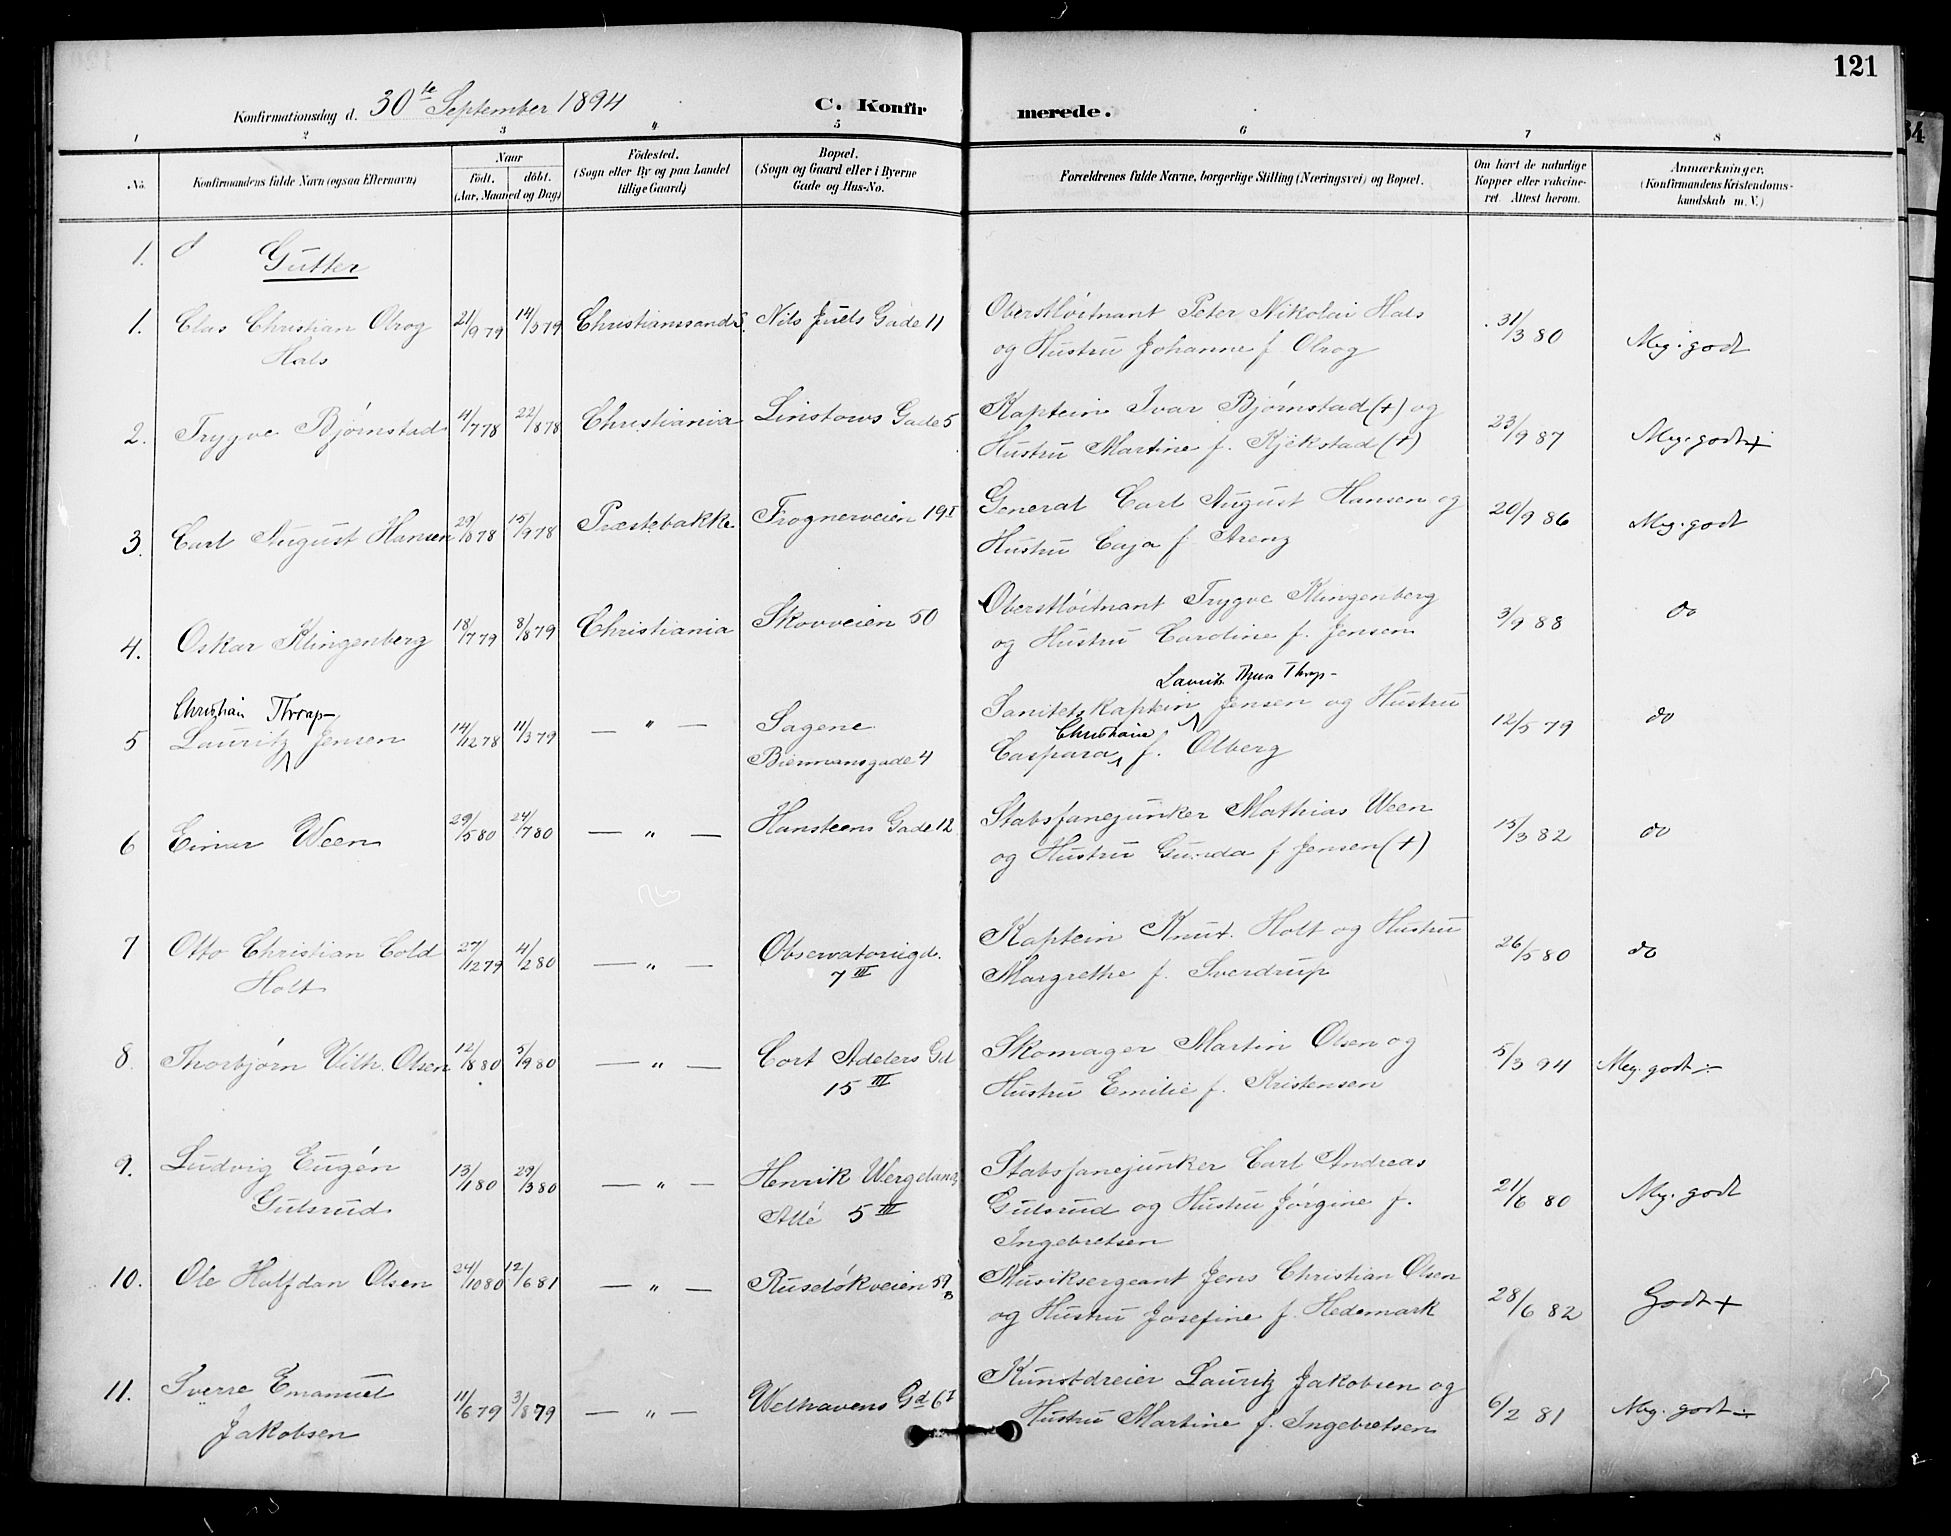 121
Konfirmationsdag d. 30te September 1894
C. Konfirmerede.
1 2 3 4 5 6 7 8
No.
Konfirmandens fulde Navn (ogsaa Efternavn)
Naar
født. døbt.
(Aar, Maaned og Dag)
Fødested.
(Sogn eller By og paa Landet
tillige Gaard)
Bopæl.
(Sogn og Gaard eller i Byerne
Gade og Hus-No.
Forældrenes fulde Navne, borgerlige Stilling (Næringsvei) og Bopæl.
Om havt de naturlige
Kopper eller vakcine-
ret. Attest herom.
Anmærkninger.
(Konfirmandens Kristendoms-
kundskab m. V.)
1. Gutter
1. Clas Christian Olrog 21/9 79 14/3 79 Christianssand S. Nils Juels Gade 11 Oberstløitnant Peter Nikolai Hals 31/3 80 Meg. godt
Hals og Hustru Johanne f. Olrog
2. Trygve Bjørnstad 4/7 78 22/8 78 Christiania Linstows Gade 5 Kaptein Ivar Bjørnstad (+) og 23/9 87 Meg. godt +
Hustru Martine f. Kjekstad (+)
3. Carl August Hansen 29/8 78 15/9 78 Præstebakke Frognerveien 19 I General Carl August Hansen og 20/9 86 Meg. godt
Hustru Caja f. Arenz
4. Oskar Klingenberg 18/7 79 8/8 79 Christiania Skovveien 50 Oberstløitnant Trygve Klingenberg 3/9 88 do
og Hustru Caroline f. Jensen
Christian Thrap- Lauritz Thura Thrap-
5 Lauritz Jensen 14/12 78 11/3 79 — " — Sagene Sanitetskaptein Jensen og Hustru 12/5 79 do
Christiane
Biermansgade 4 Caspara f. Olberg
6 Einar Ween 29/5 80 24/7 80 — " — Hansteens Gade 12 Stabsfanejunker Mathias Ween 15/3 82 do
og Hustru Gunda f Jensen (+)
7 Otto Christian Cold 27/12 79 4/2 80 — " — Observatoriegd. Kaptein Knut Holt og Hustru 26/5 80 do
Holt 7 III Margrethe f. Sverdrup
8. Thorbjørn Vilh. Olsen 12/8 80 5/9 80 — " — Cort Adelers Gd Skomager Martin Olsen og 5/3 94 Meg. godt ÷
15 III Hustru Emilie f. Kristensen
9. Ludvig Eugén 13/1 80 29/3 80 — " — Henrik Wergelands Stabsfanejunker Carl Andreas 21/6 80 Meg. godt
Gulsrud Allé 5 III Gulsrud og Hustru Jørgine f.
Ingebretsen
10. Ole Halfdan Olsen 24/10 80 12/6 81 — " — Ruseløkveien 59 B Musiksergeant Jens Christian Olsen 28/6 82 Godt +
og Hustru Josefine f. Hedemark
11. Sverre Emanuel 11/6 79 3/8 79 — " — Welhavens Gd 6 I Kunstdreier Lauritz Jakobsen og 6/2 81 Meg. godt ÷
Jakobsen Hustru Martine f. Ingebretsen